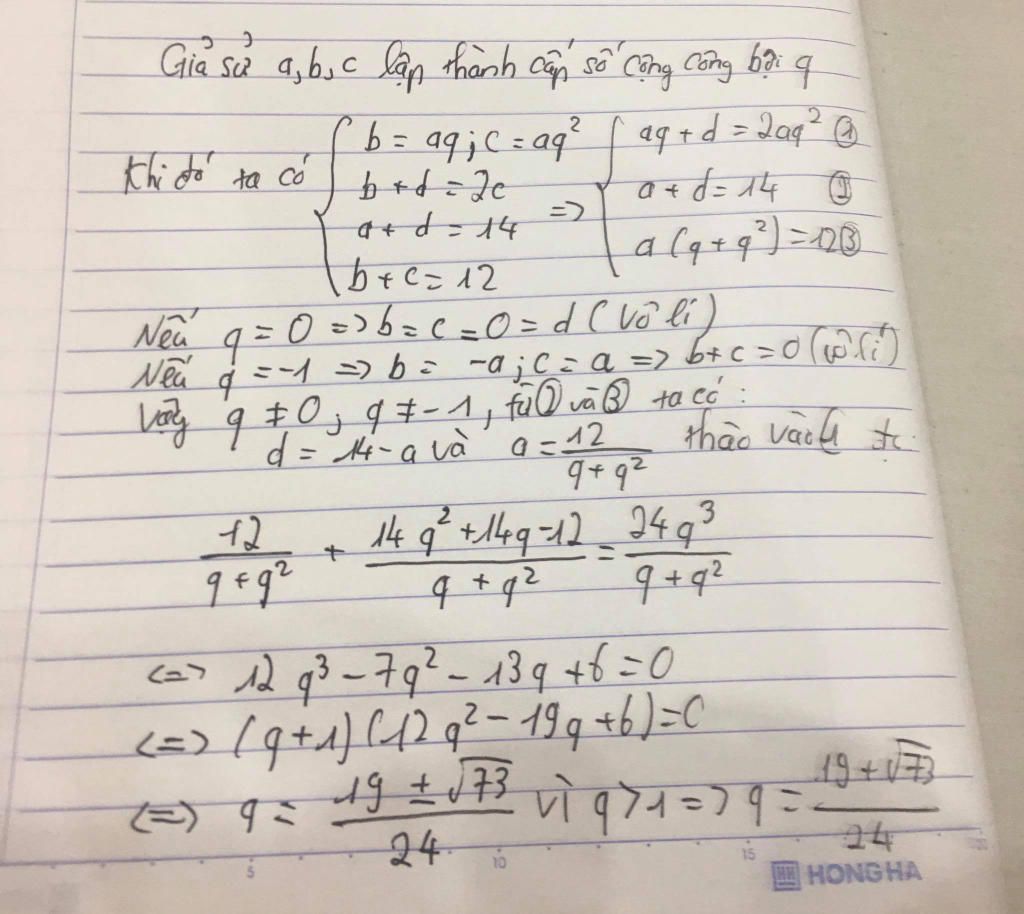 Giả sử a, b, c lập thành cấp số cộng công bội q
Khi đó ta có { b = aq; c = aq²
b + d = 2c
a + d = 14
b + c = 12
=> { aq + d = 2aq² ①
a + d = 14 ②
a(q + q²) = 12 ③
Nếu q = 0 => b = c = 0 = d (vô lí)
Nếu q = -1 => b = -a; c = a => b+c = 0 (vô lí)
Vậy q ≠ 0, q ≠ -1, từ ② và ③ ta có:
d = 14 - a và a = 12/(q + q²) thào vào
12/(q + q²) + (14q² + 14q - 12)/(q + q²) = 24q³/(q + q²)
<=> 12q³ - 7q² - 13q + 6 = 0
<=> (q + 1)(12q² - 19q + 6) = 0
<=> q = (19 ± √73)/24 vì q > 1 => q = (19 + √73)/24
5 10 15 20
HONG HA